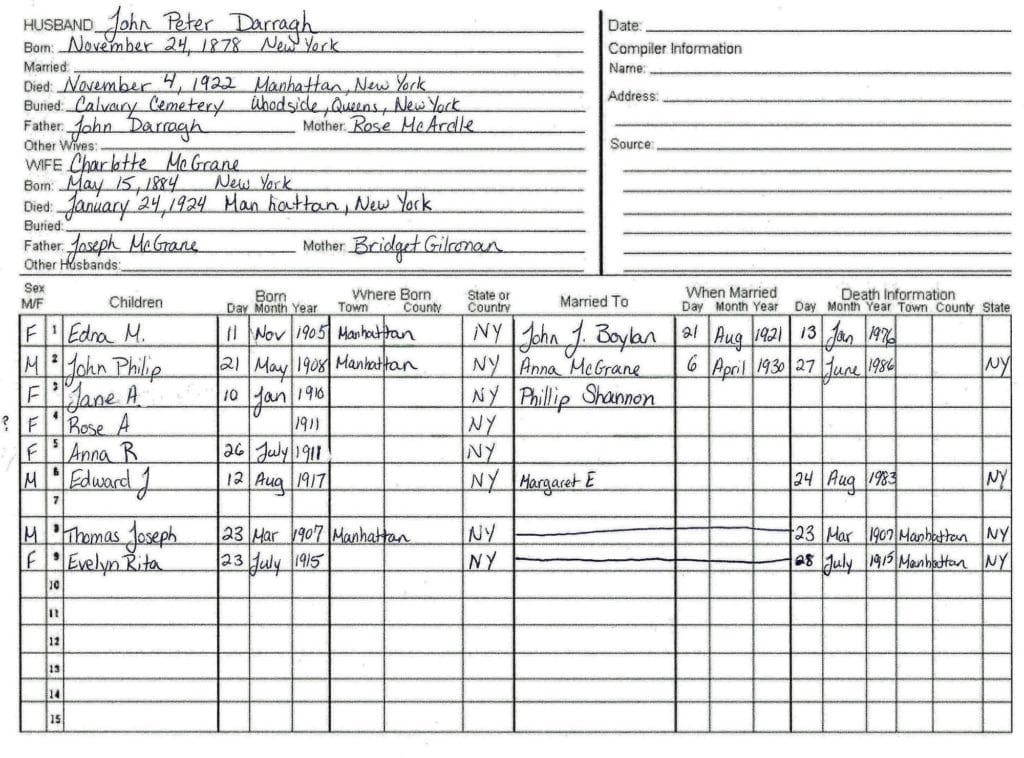 HUSBAND John Peter Darragh
Born: November 24, 1878 New York
Married:
Died: November 4, 1922 Manhattan, New York
Buried: Calvary Cemetery Woodside, Queens, New York
Father: John Darragh Mother: Rose McArdle
Other Wives:
WIFE Charlotte McGrane
Born: May 15, 1884 New York
Died: January 24, 1924 Manhattan, New York
Buried:
Father: Joseph McGrane Mother: Bridget Gilronan
Other Husbands:
Date:
Compiler Information
Name:
Address:
Source:
Sex Born Where Born State or When Married Death Information
M/F Children Day Month Year Town County Country Married To Day Month Year Day Month Year Town County State
F 1 Edna M. 11 Nov 1905 Manhattan NY John J. Boylan 21 Aug 1921 13 Jan 1976
M 2 John Philip 21 May 1908 Manhattan NY Anna McGrane 6 April 1930 27 June 1986 NY
F 3 Jane A. 10 Jan 1910 NY Phillip Shannon
? F 4 Rose A 1911 NY
F 5 Anna R 26 July 1911 NY
M 6 Edward J 12 Aug 1917 NY Margaret E 24 Aug 1983 NY
7
M 8 Thomas Joseph 23 Mar 1907 Manhattan NY 23 Mar 1907 Manhattan NY
F 9 Evelyn Rita 23 July 1915 NY 28 July 1915 Manhattan NY
10
11
12
13
14
15